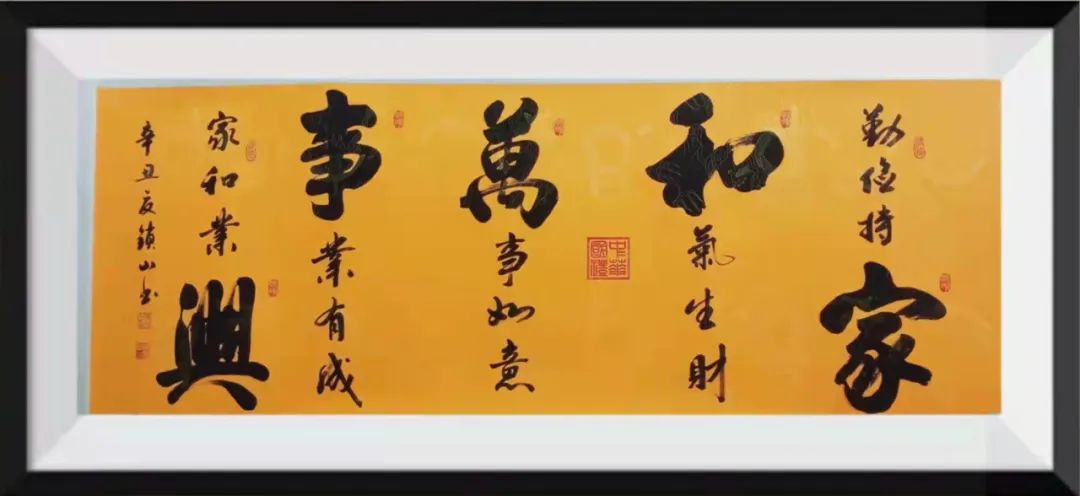 勤儉持家
和氣生財
萬事如意
事業有成
家和業興
辛丑夏鎖山书